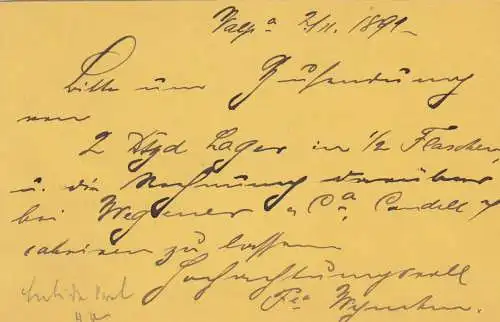 Valp.ª 2/11. 1891
Bitte um Zusendung
von
2 Dtzd Lager in 1/2 Flaschen
u. die Rechnung darüber
bei Wegener & Cª
zu lassen
Hochachtungsvoll